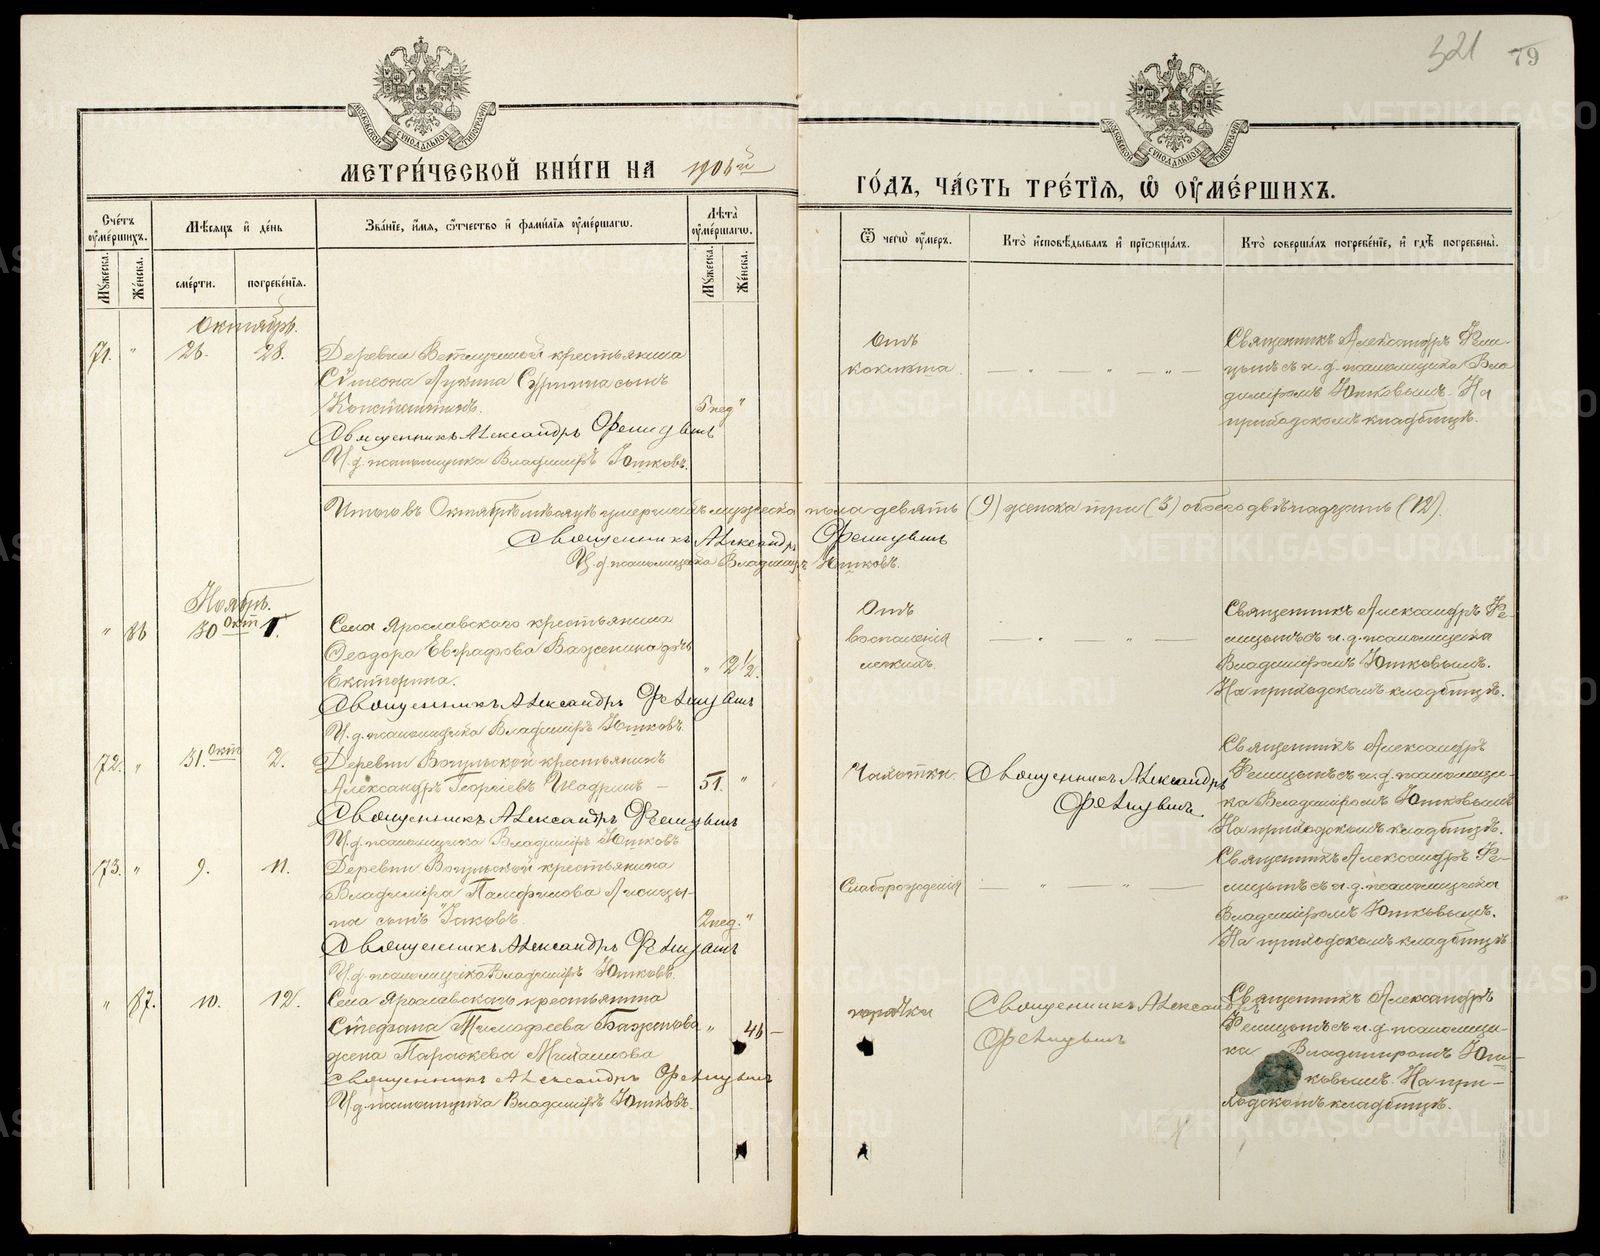 321 79
МОСКОВСКОЙ СѴНОДАЛЬНОЙ ТИПОГРАФІИ
МОСКОВСКОЙ СѴНОДАЛЬНОЙ ТИПОГРАФІИ
МЕТРИ́ЧЕСКОЙ КНИ́ГИ НА
ГО́ДЪ, ЧА́СТЬ ТРЕ́ТІѦ, Ѡ ОУМЕ́РШИХЪ.
Сче́тъ оуме́ршихъ.
Мꙋжеска.
Же́нска.
Мѣ́сяцъ и де́нь
сме́рти.
погребе́нія.
Зва́ніе, и́мя, о́тчество и фами́лія оуме́ршаго.
Лѣта̀ оуме́ршаго.
Мꙋжеска.
Же́нска.
Ѿ чего̀ оу́меръ.
Кто̀ исповѣ́дывалъ и прїобща́лъ.
Кто̀ соверша́лъ погребе́ніе, и гдѣ̀ погребены̀.
Октябрь.
71. " 26. 28.
Деревни Ветлугиной крестьянина
Сѵмеона Лукина сынъ
Константинъ.
5 нед "
Священникъ Александръ
И. д. псаломщика Владиміръ Юшковъ.
Отъ
коклюша
Священникъ Александръ
съ и. д. псаломщика Вла-
диміромъ Юшковымъ. На
приходскомъ кладбищѣ.
Итого въ Октябрѣ мѣсяцѣ умершихъ мужеска пола девять (9) женска три (3) обоего двѣнадцать (12).
Священникъ Александръ
И. д. псаломщика Владиміръ Юшковъ.
Ноябрь.
" 86 30 Окт 1.
Села Ярославского крестьянина
Ѳеодора Евграфова Баженина дочь
Екатерина.
" 2½.
Священникъ Александръ
И. д. псаломщика Владиміръ Юшковъ.
Отъ
воспаленія
легкихъ.
Священникъ Александръ
съ и. д. псаломщика
Владиміромъ Юшковымъ.
На приходскомъ кладбищѣ.
72. " 31. Окт 2.
Деревни Вогульской крестьянинъ
Александръ Георгіевъ Шадринъ —
51. "
Священникъ Александръ
И. д. псаломщика Владиміръ Юшковъ
Чахотки.
Священникъ Александръ
Священникъ Александръ
съ и. д. псаломщи-
ка Владиміромъ Юшковымъ
На приходскомъ кладбищѣ.
73. " 9. 11.
Деревни Вогульской крестьянина
Владиміра Памфилова Лисицы-
на сынъ Іаковъ
2 нед. "
Священникъ Александръ
И. д. псаломщика Владиміръ Юшковъ.
Слаборожденія
Священникъ Александръ
съ и. д. псаломщика
Владиміромъ Юшковымъ.
На приходскомъ кладбищѣ
" 87. 10. 12.
Села Ярославского крестьянина
Стефана Тимофеева Баженова
жена Параскева
" 46 —
Священникъ Александръ
И. д. псаломщика Владиміръ Юшковъ.
горячки
Священникъ Александръ
Священникъ Александръ
съ и. д. псаломщи-
ка Владиміромъ Юш-
ковымъ. На при-
ходскомъ кладбищѣ.
METRIKI.GASO-URAL.RU